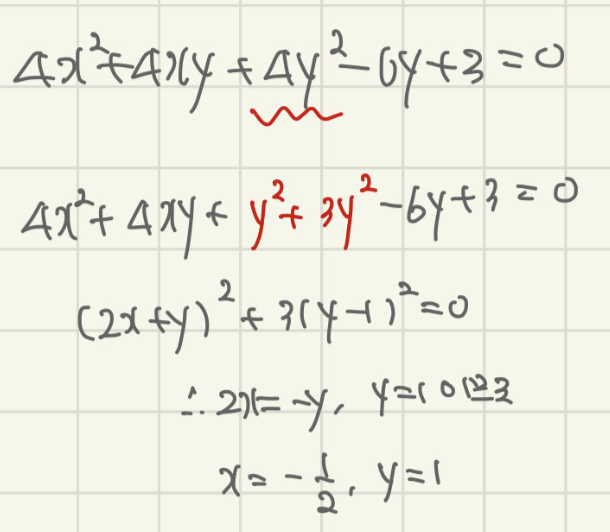 4x²+4xy+4y²-6y+3=0
4x²+4xy+y²+3y²-6y+3=0
(2x+y)²+3(y-1)²=0
∴ 2x=-y, y=1 이므로
x=-1/2, y=1